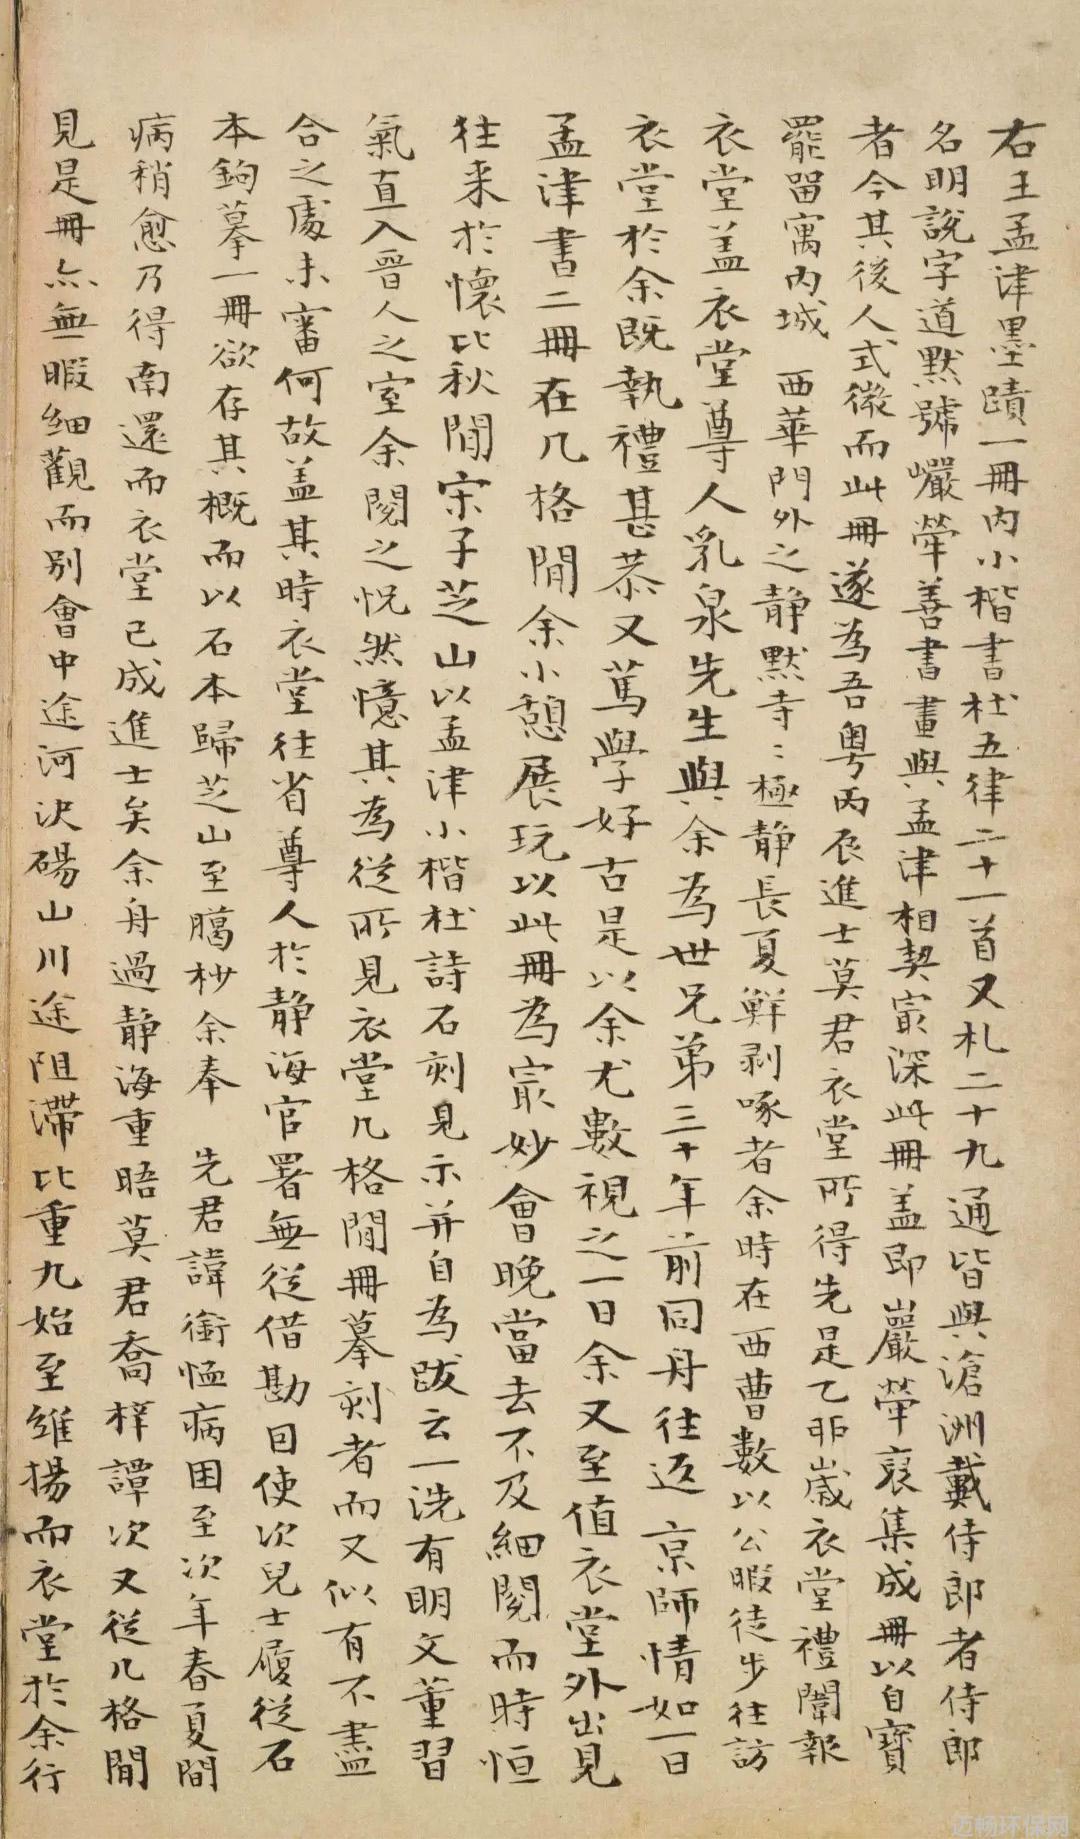 右王孟津墨蹟一冊內小楷書杜五律二十一首又札二十九通皆與滄洲戴侍郎者侍郎
名明說字道默號巖犖善書畫與孟津相契最深此冊蓋即巖犖裒集成冊以自寶
者今其後人式微而此冊遂為吾粵丙辰進士莫君衣堂所得先是乙卯歲衣堂禮闈報
罷留寓內城 西華門外之静默寺〻極静長夏鮮剥啄者余時在西曹數以公暇徒步往訪
衣堂盖衣堂尊人乳泉先生與余為世兄弟三十年前同舟往返 京師情如一日
衣堂於余既執禮甚恭又篤學好古是以余尤數視之一日余又至值衣堂外出見
孟津書二冊在几格間余小憩展玩以此冊為最妙會晚當去不及細閱而時恒
往来於懷比秋間宋子芝山以孟津小楷杜詩石刻見示并自為跋云一洗有明文董習
氣直入晉人之室余閱之怳然憶其為從所見衣堂几格間冊摹刻者而又似有不盡
合之處未審何故盖其時衣堂往省尊人於静海官署無從借勘因使次兒士履從石
本鉤摹一冊欲存其概而以石本歸芝山至臈杪余奉 先君諱銜恤病困至次年春夏間
病稍愈乃得南還而衣堂已成進士矣余舟過静海重晤莫君喬梓譚次又從几格間
見是冊亦無暇細觀而别會中途河決碭山川途阻滯比重九始至維揚而衣堂於余行
迈畅环保网